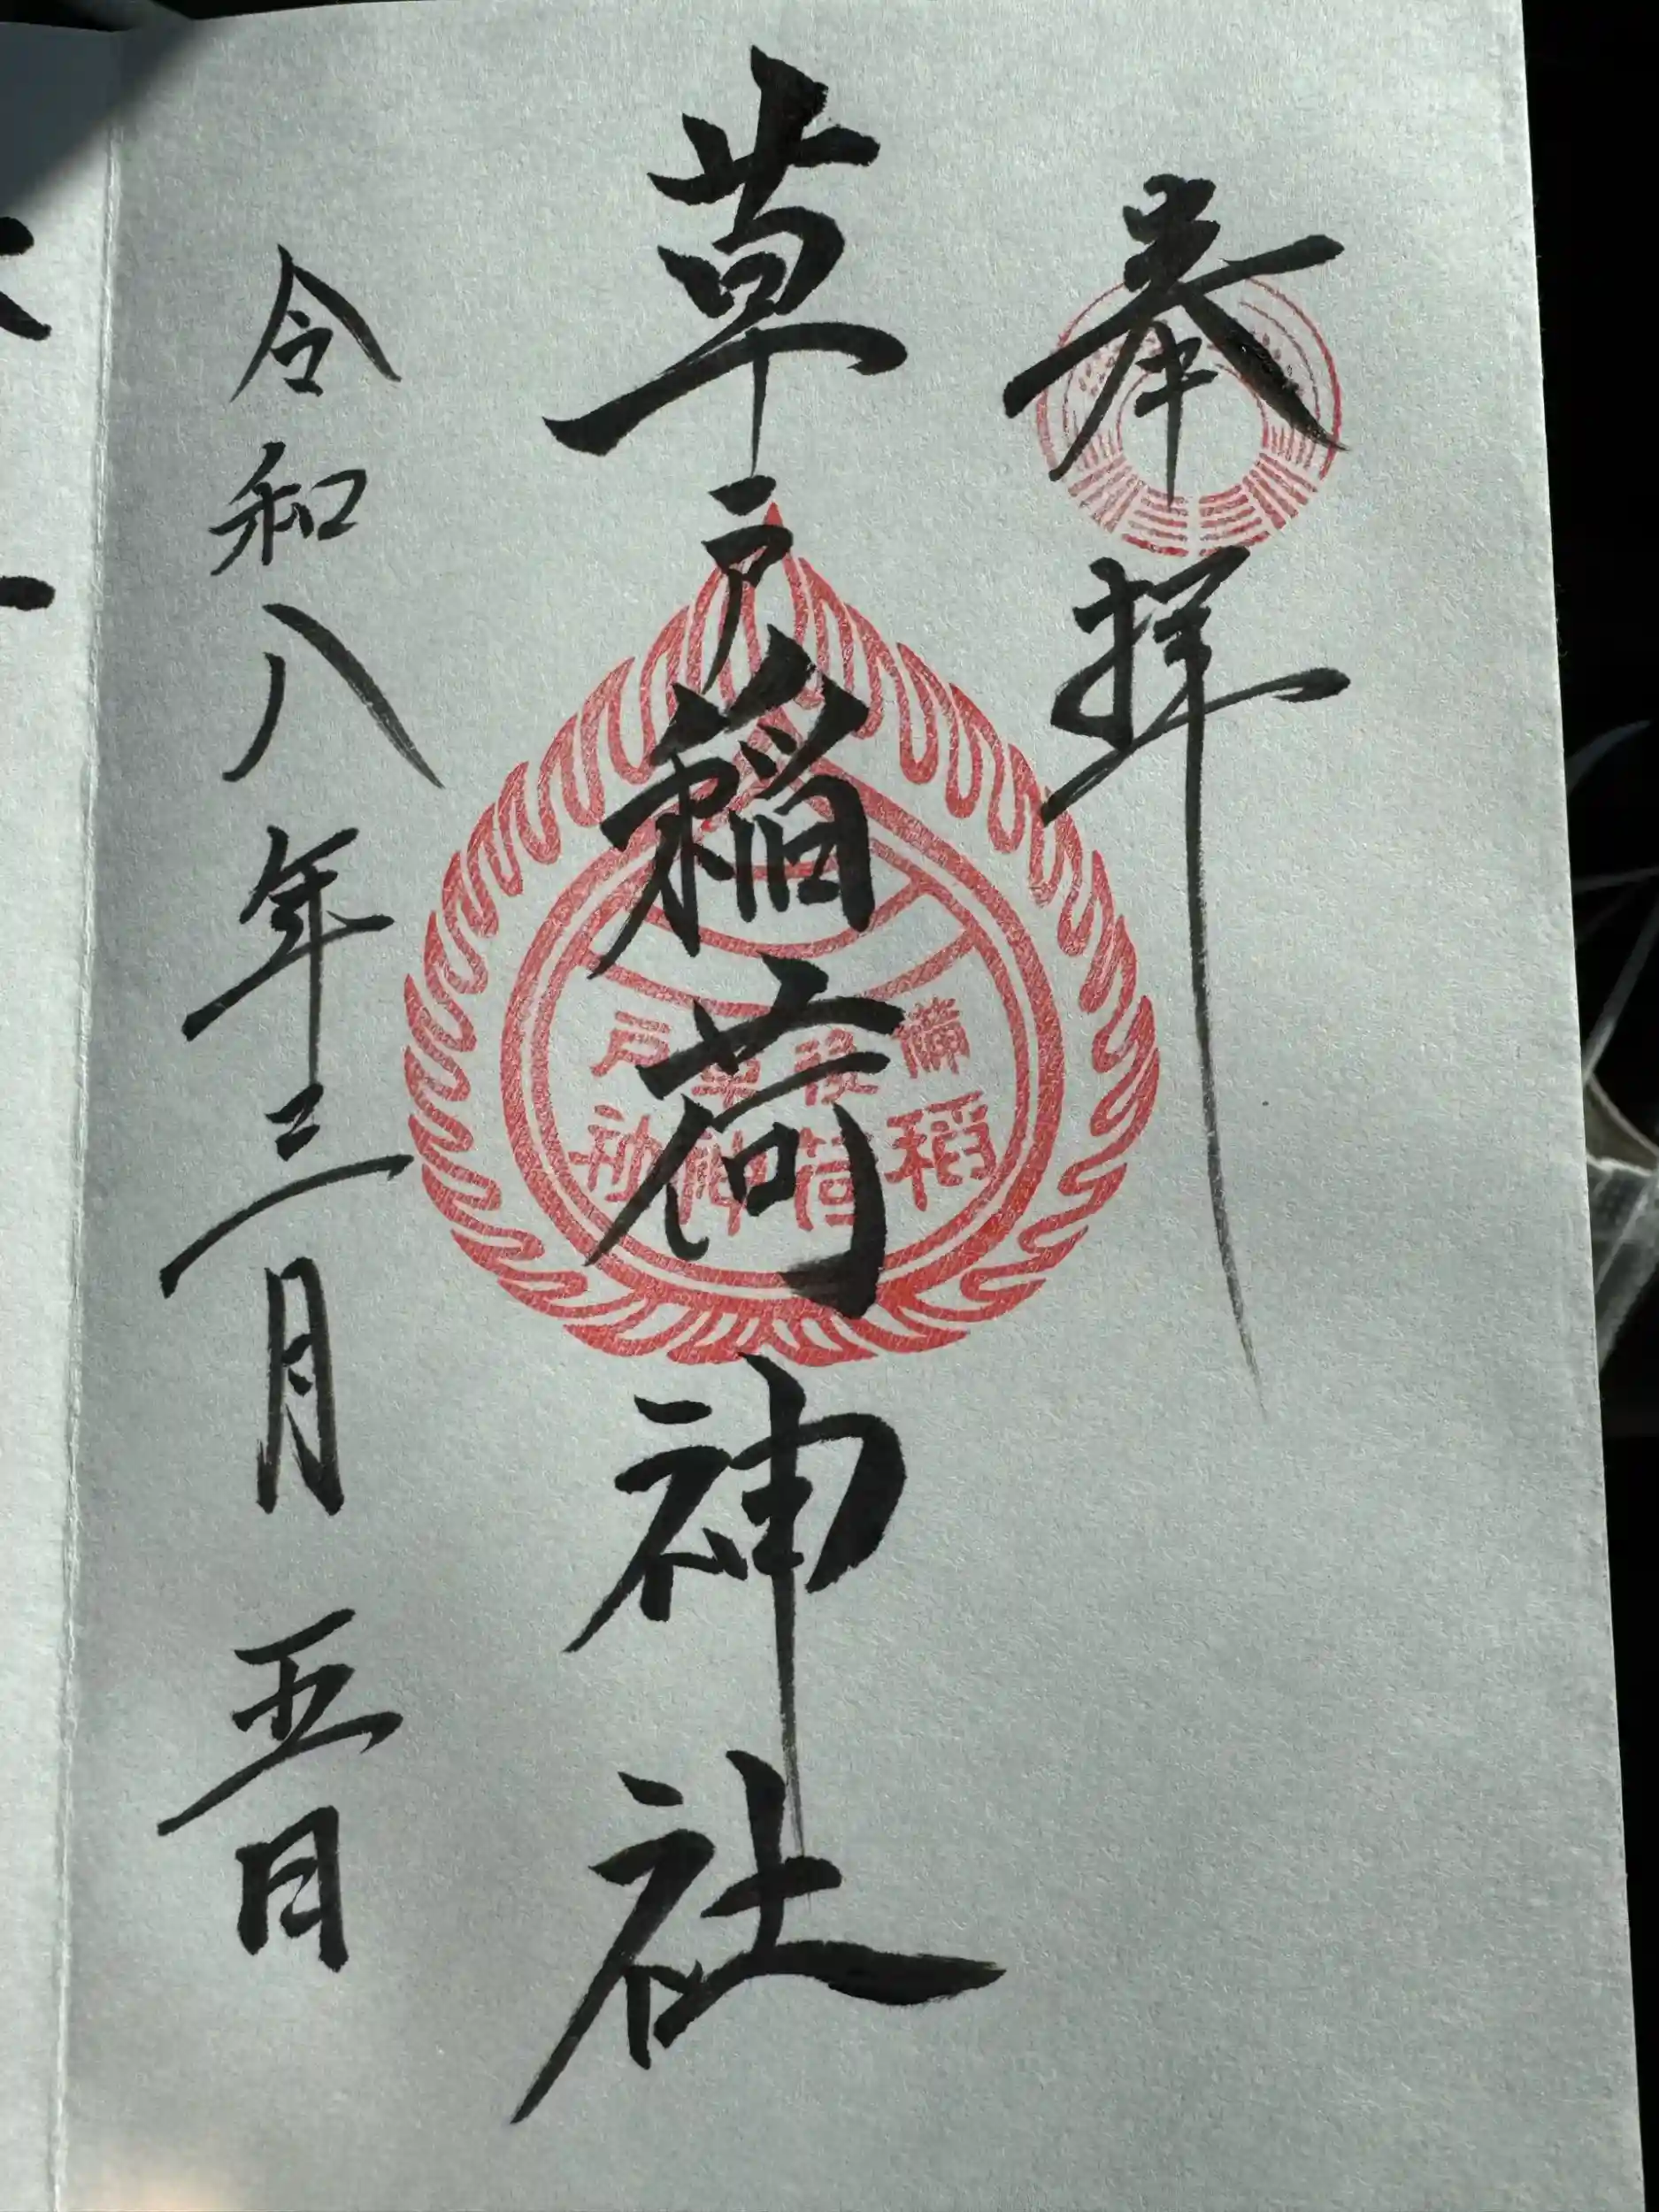 奉拝
草戸稲荷神社
令和八年三月五日
備後草戸
稲荷神